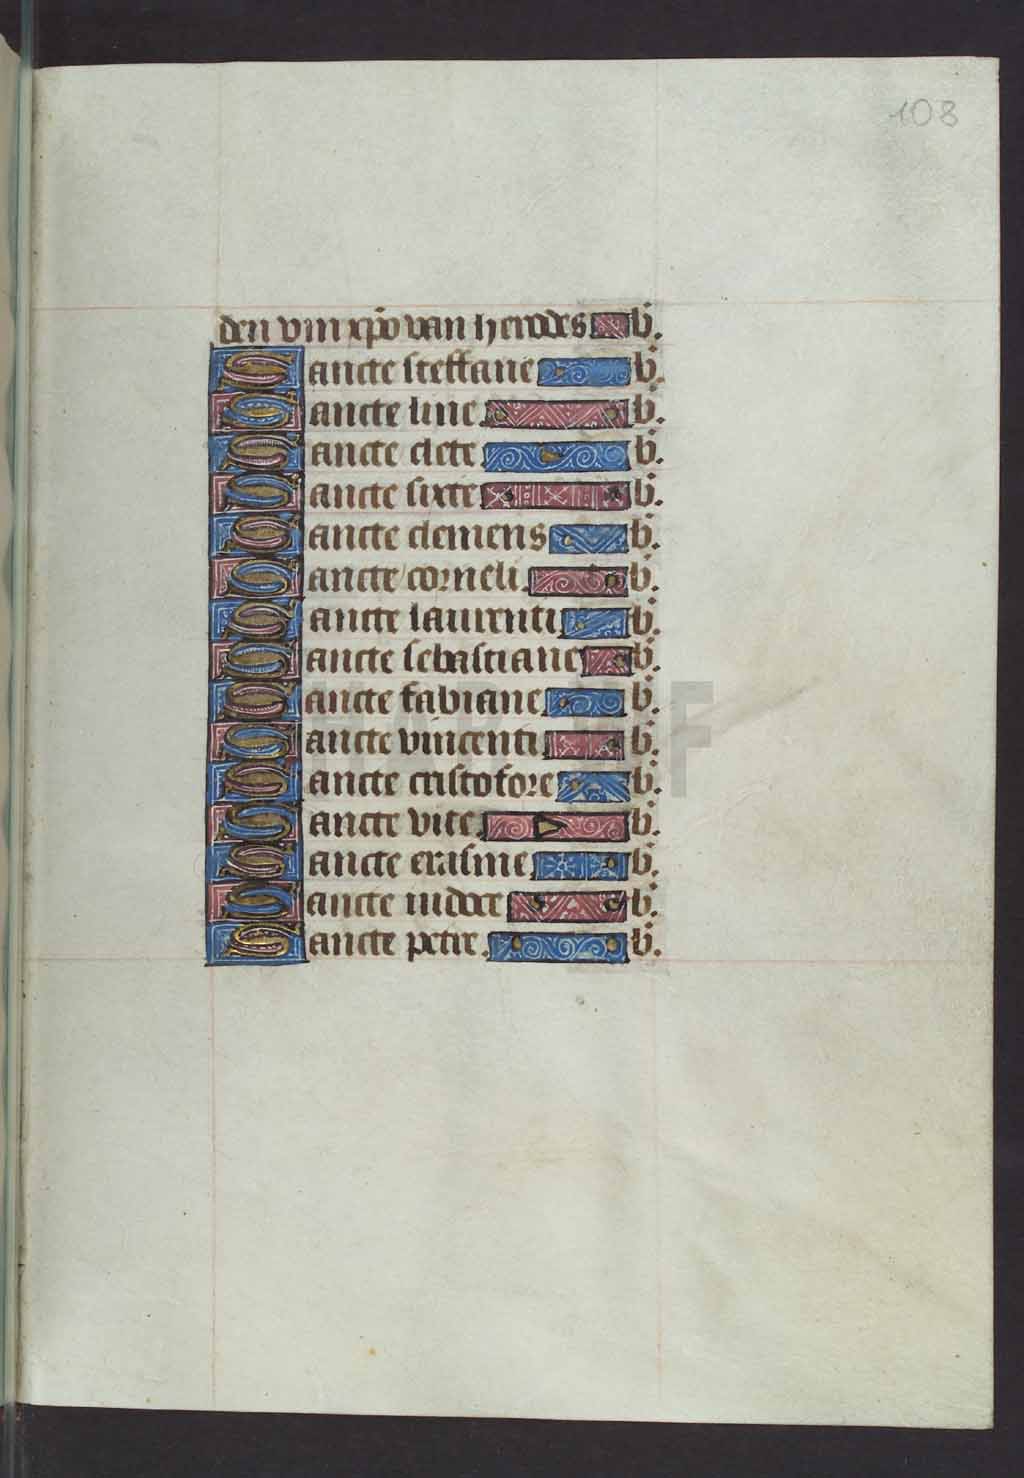 108
den vm xp̄o van herodes b̄.
Sancte steffane b̄.
Sancte line. b̄.
Sancte clete b̄.
Sancte sixte b̄.
Sancte clemens b̄.
Sancte corneli. b̄.
Sancte laurenti. b̄.
Sancte sebastiane b̄.
Sancte fabiane b̄.
Sancte vincenti. b̄.
Sancte cristofore b̄.
Sancte vite. b̄.
Sancte erasme. b̄.
Sancte iudoce b̄.
Sancte petre. b̄.